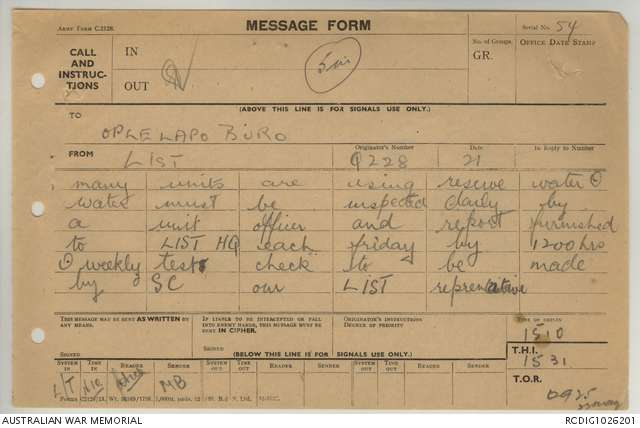 Army Form C2128.
MESSAGE FORM
Serial No. 54
CALL AND INSTRUCTIONS
IN
OUT
No. of Groups.
GR.
OFFICE DATE STAMP
(ABOVE THIS LINE IS FOR SIGNALS USE ONLY.)
TO
OPLE LAPO BURO
FROM
LIST
Originator's Number
Q228
Date
21
In Reply to Number
many units are using reserve water ⊙
water must be inspected daily by
a unit officer and report furnished
to LIST HQ each friday by 1200 hrs
⊙ weekly tests check to be made
by SC our LIST reprenative
THIS MESSAGE MAY BE SENT AS WRITTEN BY ANY MEANS.
IF LIABLE TO BE INTERCEPTED OR FALL INTO ENEMY HANDS, THIS MESSAGE MUST BE SENT IN CIPHER.
ORIGINATOR'S INSTRUCTIONS
DEGREE OF PRIORITY
TIME OF ORIGIN
1510
SIGNED
SIGNED
(BELOW THIS LINE IS FOR SIGNALS USE ONLY.)
T.H.I.
1531
SYSTEM IN
TIME IN
READER
SENDER
SYSTEM OUT
TIME OUT
READER
SENDER
SYSTEM OUT
TIME OUT
READER
SENDER
T.O.R.
L/T
MB
0925
AUSTRALIAN WAR MEMORIAL
RCDIG1026201